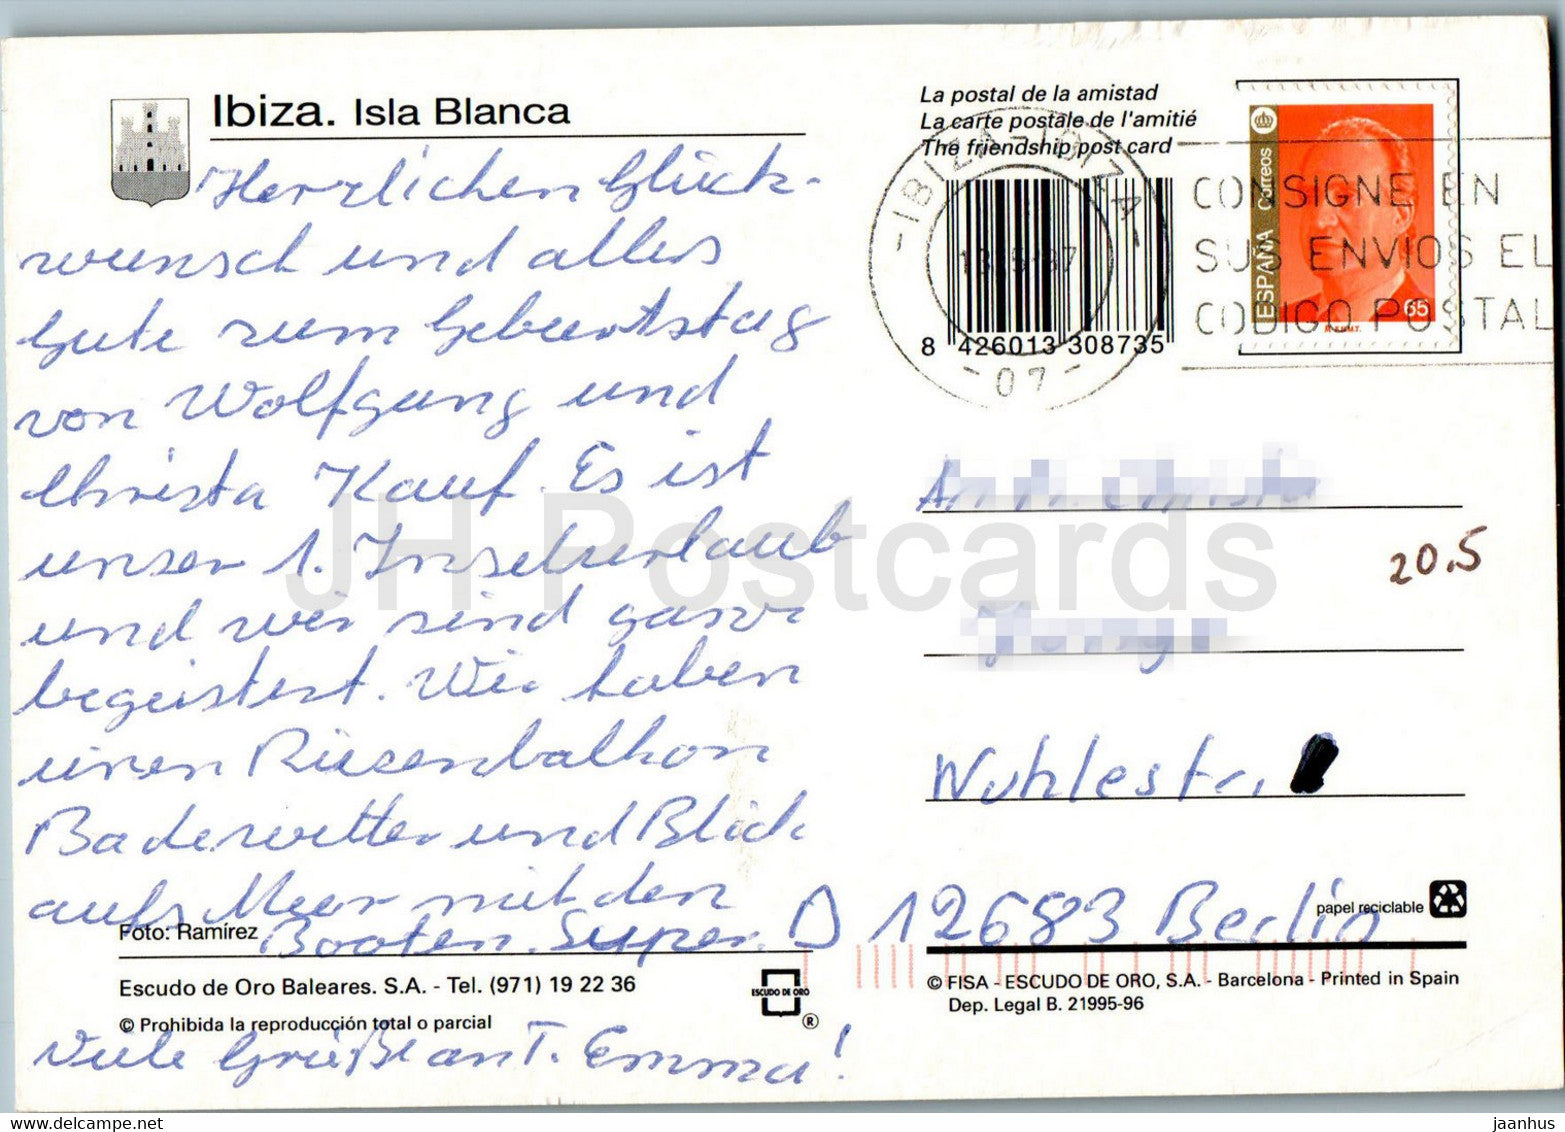 Ibiza. Isla Blanca
Herzlichen Glück-
wunsch und alles
Gute zum Geburtstag
von Wolfgang und
Christa Kauf. Es ist
unser 1. Inselurlaub
und wir sind ganz
begeistert. Wir haben
einen Riesenbalkon
Badewetter und Blick
aufs Meer mit den
Booten. Super.
Foto: Ramírez
Escudo de Oro Baleares. S.A. - Tel. (971) 19 22 36
© Prohibida la reproducción total o parcial
Viele Grüße an T. Emma!
ESCUDO DE ORO
®
La postal de la amistad
La carte postale de l'amitié
The friendship post card
8 426013 308735
- IBIZA - IBIZA -
- 07 -
CONSIGNE EN
SUS ENVIOS EL
CODIGO POSTAL
ESPAÑA Correos
65
20.5
Wuhlestr.
D 12683 Berlin
papel reciclable
© FISA - ESCUDO DE ORO, S.A. - Barcelona - Printed in Spain
Dep. Legal B. 21995-96
JH Postcards
www.delcampe.net
jaanhus